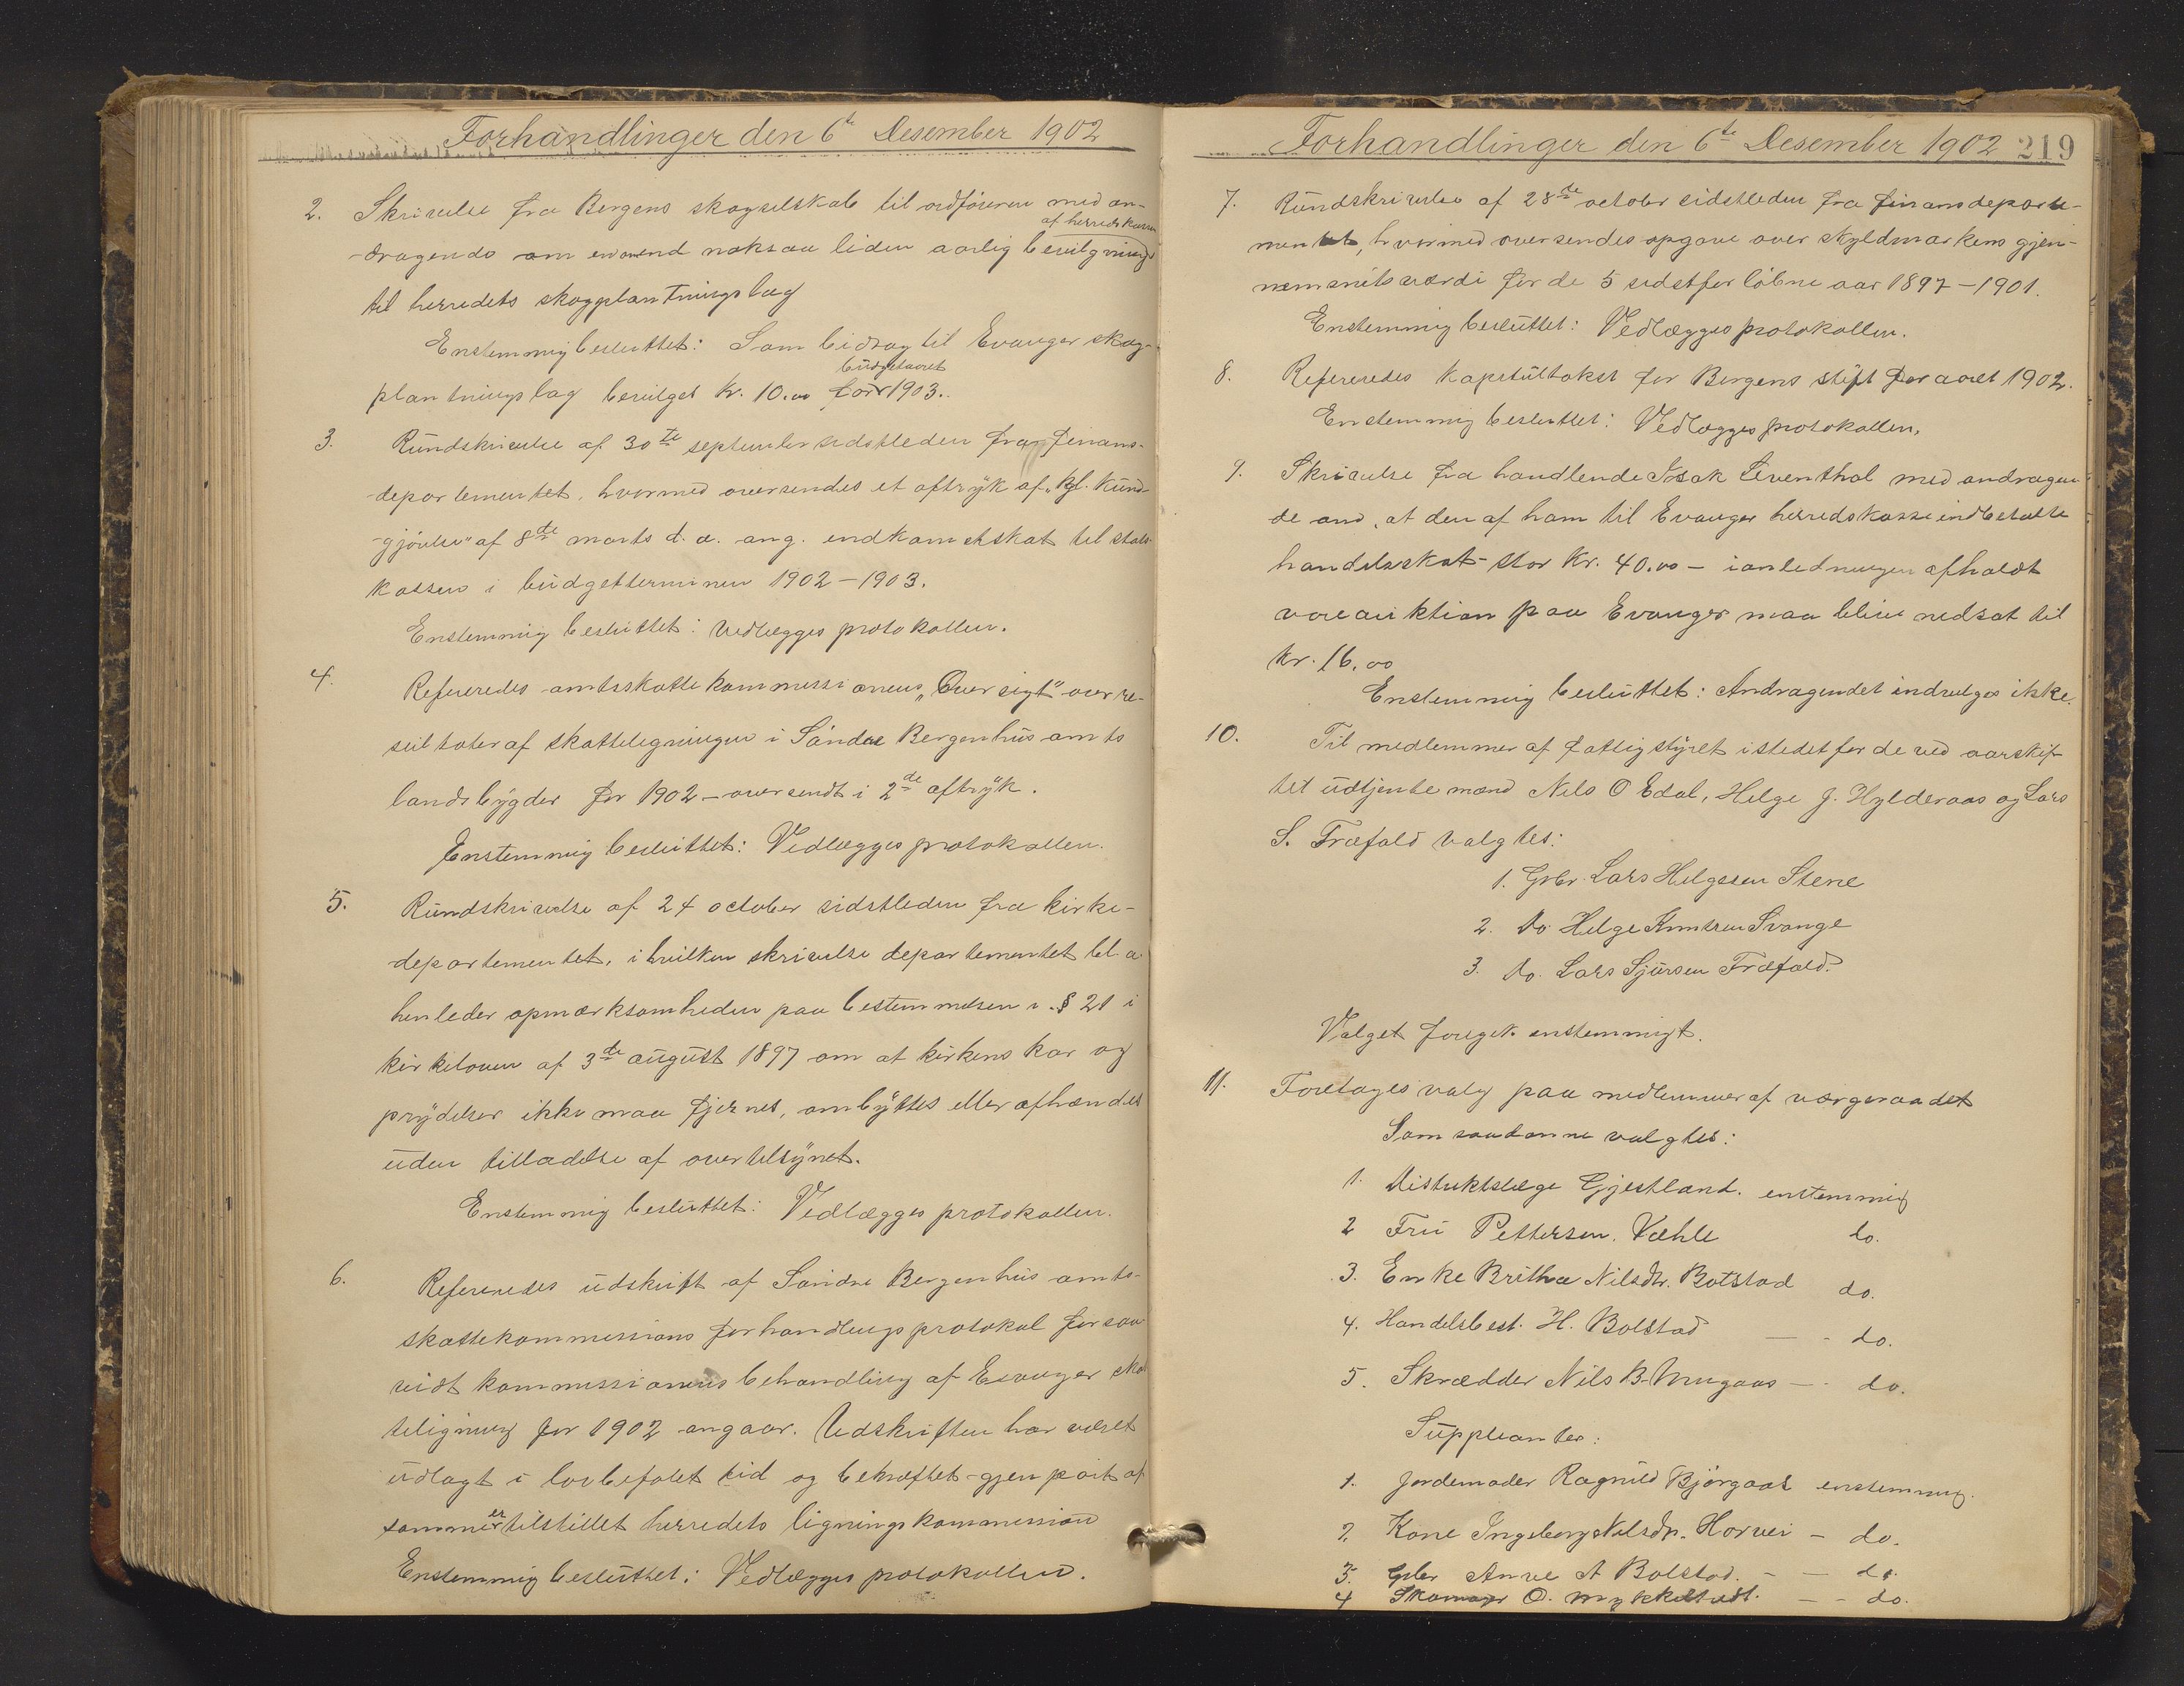 Forhandlinger den 6te Desember 1902
2. Skrivelse fra Bergens skogselskab til ordføreren med an-
af herredskassen
dragende om en end noksaa liden aarlig bevilgning
til herredets skogplantningslag
Enstemmig besluttet: Som bidrag til Evanger skog-
budgetaaret
plantningslag bevilges kr. 10.00 for 1903.
3. Rundskrivelse af 30te september sidstleden fra finans-
departementet, hvormed oversendes et aftryk af „kgl. kund-
gjørelse" af 8de marts d. a. ang. indkomstskat til stats-
kassen i budgetterminen 1902-1903.
Enstemmig besluttet: Vedlægges protokollen.
4. Refereredes amtsskattekommissionens „Oversigt" over re-
sultater af skatteligningen i Søndre Bergenhus amts
landsbygder for 1902 - oversendt i 2de aftryk.
Enstemmig besluttet: Vedlægges protokollen.
5. Rundskrivelse af 24 october sidstleden fra kirke-
departementet, i hvilken skrivelse departementet bl. a.
henleder opmærksomheden paa bestemmelsen i § 21 i
kirkeloven af 3de august 1897 om at kirkens kar og
prydelser ikke maa fjernes, ombyttes eller afhændes
uden tilladelse af overtilsynet.
Enstemmig besluttet: Vedlægges protokollen.
6. Refereredes udskrift af Søndre Bergenhus amts-
skattekommissions forhandlingsprotokol forsaa-
vidt kommissionens behandling af Evanger skat-
teligning for 1902 angaar. Udskriften har været
udlagt i lovbefalet tid og bekræftet gjenpart af
samme er tilstillet herredets ligningskommission
Enstemmig besluttet: Vedlægges protokollen.
Forhandlinger den 6te Desember 1902 219
7. Rundskrivelse af 28de october sidstleden fra finansdeparte-
mentet, hvormed oversendes opgave over skyldmarkens gjen-
nemsnitsværdi for de 5 sidstforløbne aar 1897-1901.
Enstemmig besluttet: Vedlægges protokollen.
8. Refereredes kapitultakst for Bergens stift for aaret 1902.
Enstemmig besluttet: Vedlægges protokollen.
9. Skrivelse fra handlende Isak Leventhal med andragen-
de om, at den af ham til Evanger herredskasse indbetalte
handelsskat stor kr. 40.00 - i anledningen afholdt
vareauktion paa Evanger maa blive nedsat til
kr. 16.00
Enstemmig besluttet: Andragendet indvilges ikke.
10. Til medlemmer af fattigstyret istedetfor de ved aarskif-
tet udtjente mænd Nils O Edal, Helge J. Hylderaas og Lars
S. Træfald valgtes:
1. Gbr. Lars Helgesen Stene
2. do Helge Knutsen Svange
3. do. Lars Sjursen Træfald.
Valget foregik enstemmigt.
11. Foretages valg paa medlemmer af værgeraadet
Som saadanne valgtes:
1. Distriktslæge Gjestland. enstemmig
2 Fru Pettersen. Væhle do.
3. Enke Britha Nilsdtr. Bolstad do.
4. Handelsbest. H. Bolstad - - do.
5. Skrædder Nils B. - do.
Suppleanter:
1. Jordemoder Ragnild Bjørgaas enstemmig.
2. Kone Ingeborg Nilsdtr. Horvei - do.
3. Gbr Anve A Bolstad. - - do.
4 Skomager O. Mykkeltvedt. - - do.